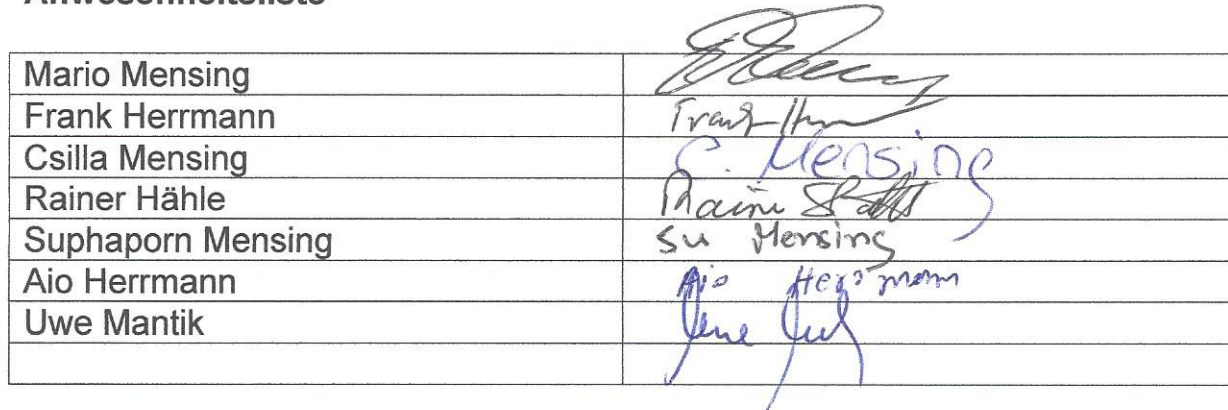 Anwesenheitsliste
Mario Mensing
Frank Herrmann Frank
Csilla Mensing C. Mensing
Rainer Hähle
Suphaporn Mensing Su Mensing
Aio Herrmann Aio Herrmann
Uwe Mantik